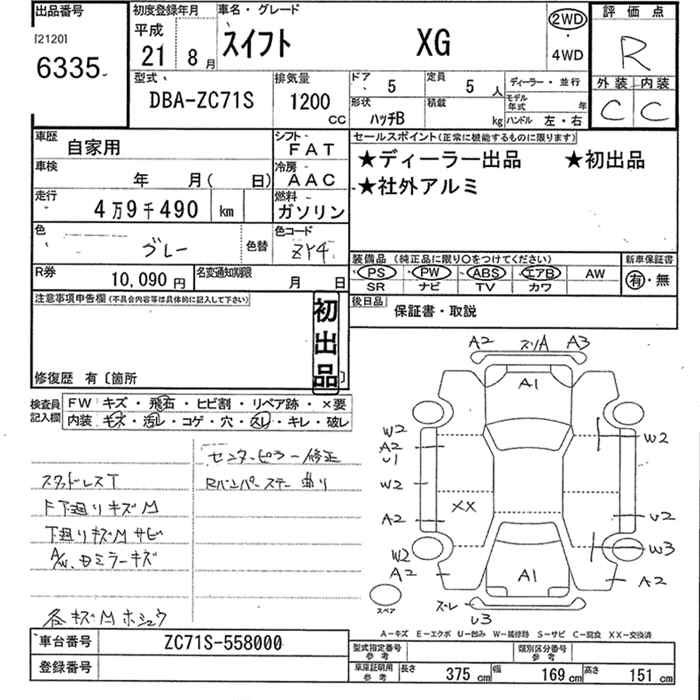 出品番号 初度登録年月 車名・グレード 評価点
[2120] 平成 2WD
6335 21 8月 スイフト XG 4WD R
型式 排気量 ドア 定員 ディーラー・並行 外装 内装
DBA-ZC71S 1200 CC 5 5人 モデル年式 年 C C
形状 ハッチB 積載 kg ハンドル 左・右
車歴 自家用 シフト FAT セールスポイント(正常に機能するものに限ります)
車検 年 月( 日) 冷房 AAC ★ディーラー出品 ★初出品
走行 4万9千490 km 燃料 ガソリン ★社外アルミ
色 グレー 色替 色コード ZY4
装備品(純正品に限り○をつけてください) 新車保証書
R券 10,090円 名変通知期限 月 日 PS PW ABS エアB AW 有・無
SR ナビ TV カワ
注意事項申告欄(不具合内容等は具体的に記入して下さい) 初出品 後日品 保証書・取説
修復歴 有〔箇所 〕
検査員記入欄 FW キズ・飛石・ヒビ割・リペア跡・×要
内装・キズ・汚レ・コゲ・穴・スレ・キレ・破レ
センターピラー修正
スタッドレスT Rバンパーステー曲り
F下廻りキズM
下廻りキズMサビ
A/W、ミラーキズ
各キズMホシュウ
A2 スリA A3
A1
W2 W2
A2
U1
W2
XX
A2 U2
W2 W3
A2 A1 A2
スペア ズレ U3
A-キズ E-エクボ U-凹み W-補修跡 S-サビ C-腐食 XX-交換済
車台番号 ZC71S-558000 型式指定番号 参考 類別区分番号 参考
登録番号 車庫証明用 参考 長さ 375cm 幅 169cm 高さ 151cm